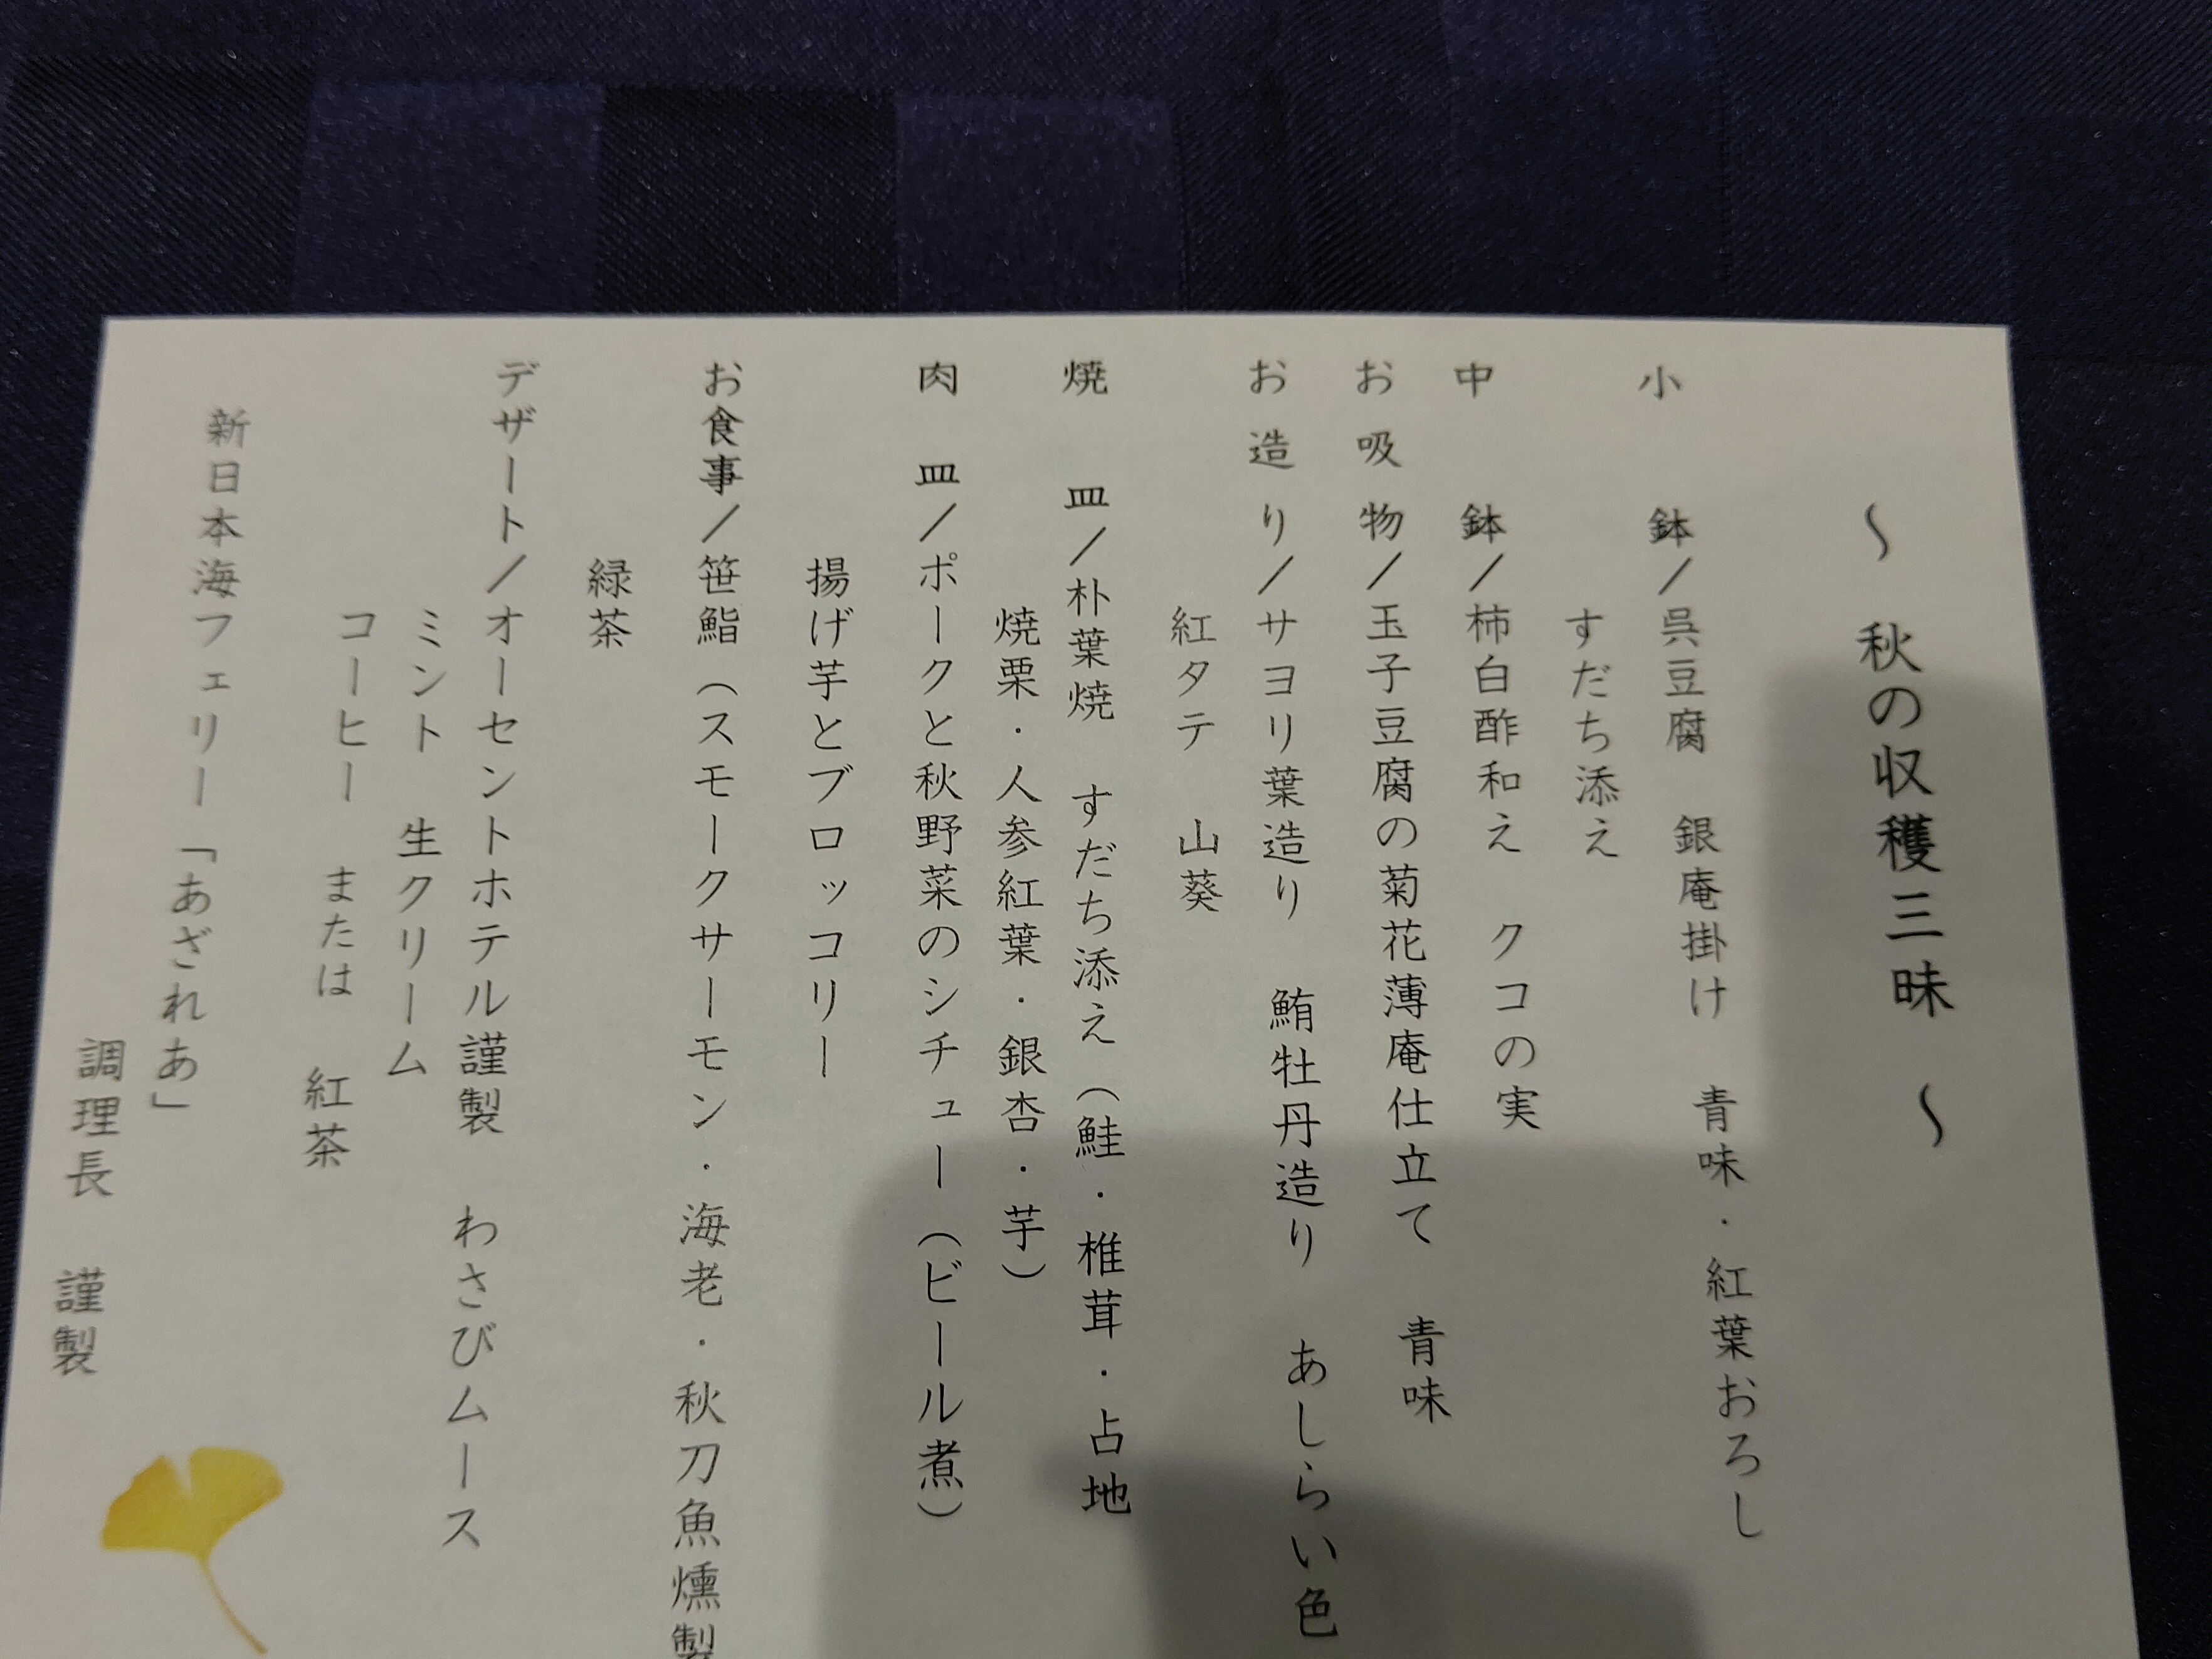 ～ 秋の収穫三昧 ～
小 鉢／呉豆腐 銀庵掛け 青味・紅葉おろし
すだち添え
中 鉢／柿白酢和え クコの実
お吸物／玉子豆腐の菊花薄庵仕立て 青味
お造り／サヨリ葉造り 鮪牡丹造り あしらい色
紅タテ 山葵
焼 皿／朴葉焼 すだち添え（鮭・椎茸・占地
焼栗・人参紅葉・銀杏・芋）
肉 皿／ポークと秋野菜のシチュー（ビール煮）
揚げ芋とブロッコリー
お食事／笹鮨（スモークサーモン・海老・秋刀魚燻製
緑茶
デザート／オーセントホテル謹製 わさびムース
ミント 生クリーム
コーヒー または 紅茶
新日本海フェリー「あざれあ」
調理長 謹製